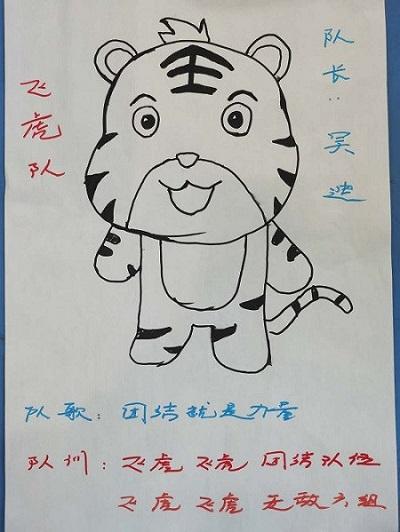 飞虎队
队长：吴迪
队歌：团结就是力量
队训：飞虎 飞虎 团结队伍
飞虎 飞虎 无敌六组